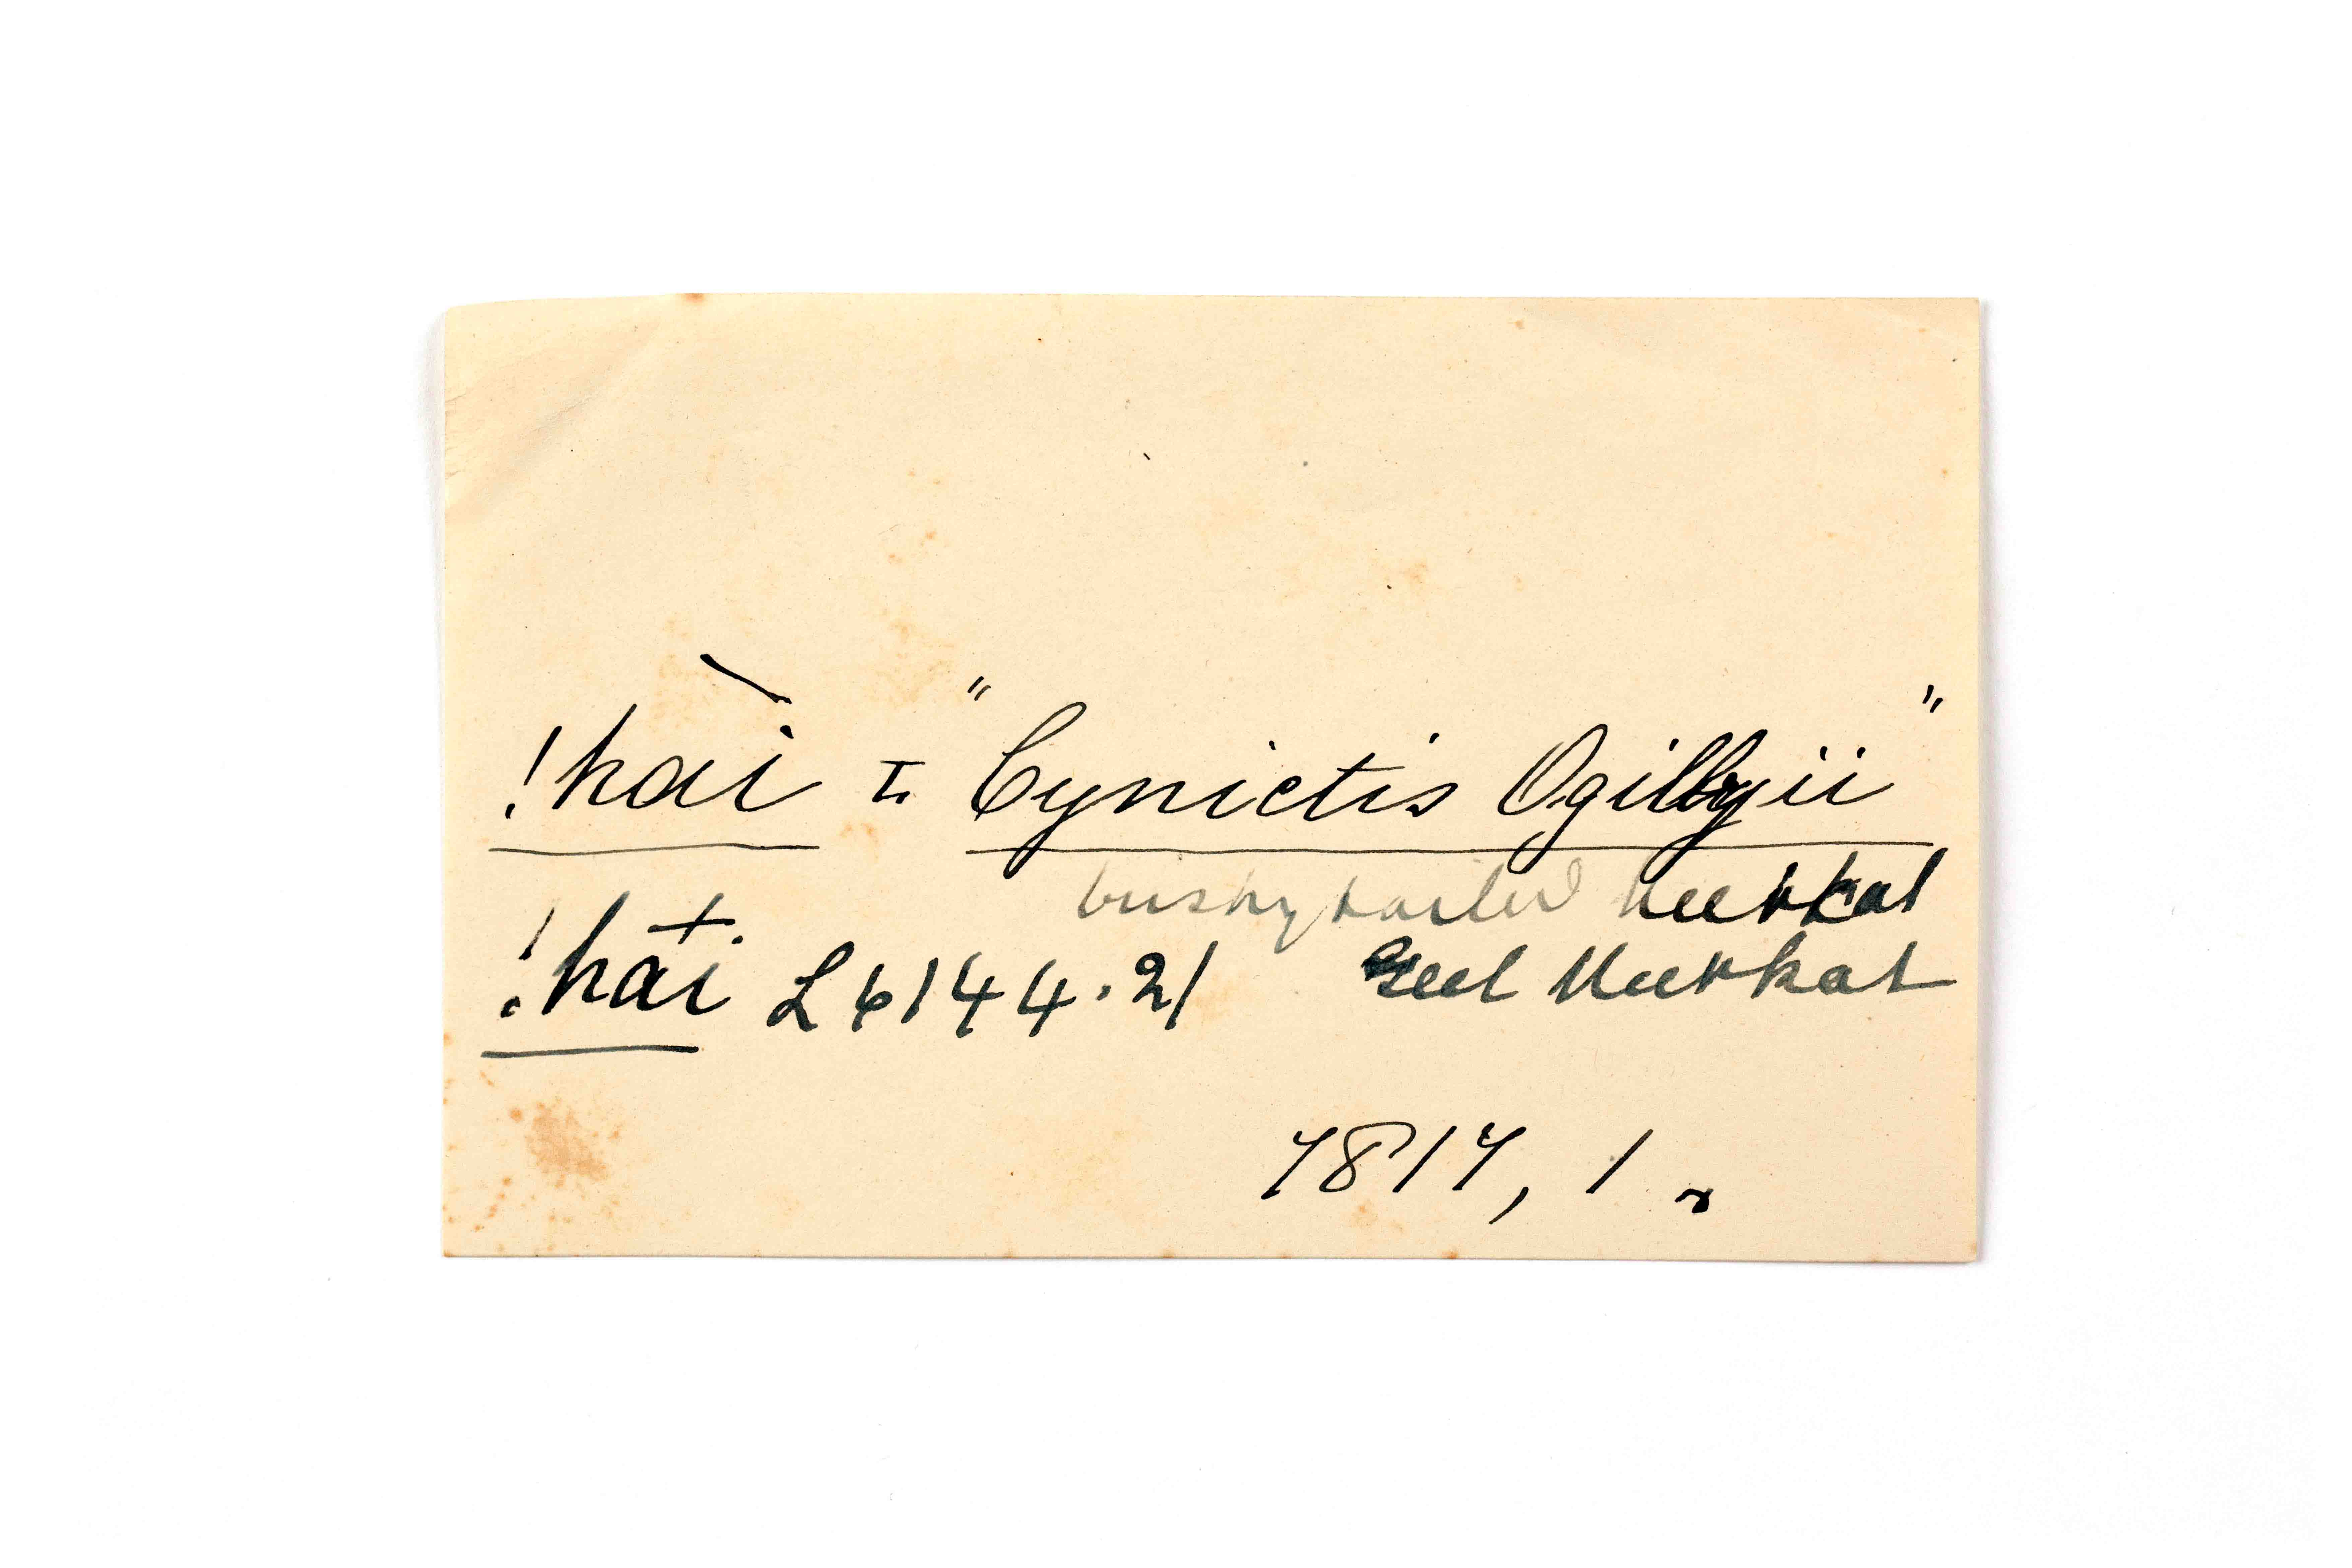 !hài = "Cynictis Ogilbyii"
bushy tailed Meerkat
!hai L 6144.21 Geel Meerkat
7817, 1.